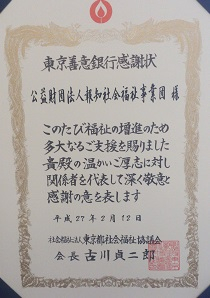 東京善意銀行感謝状
公益財団法人報知社会福祉事業団 様
このたび福祉の増進のため
多大なるご支援を賜りました
貴殿の温かいご厚志に対し
関係者を代表して深く敬意と
感謝の意を表します
平成27年2月12日
社会福祉法人東京都社会福祉協議会
会長 古川貞二郎